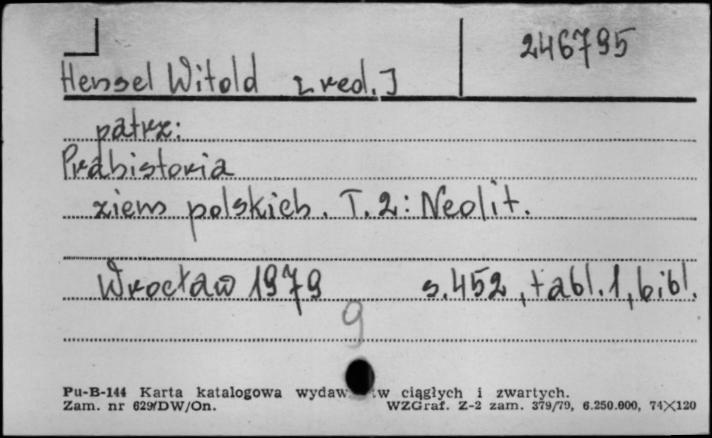 246795
Hensel Witold [red.]
patrz:
Prahistoria
ziem polskich. T. 2: Neolit.
Wrocław 1979 s. 452, tabl. 1, bibl.
9
Pu-B-144 Karta katalogowa wydaw tw ciągłych i zwartych.
Zam. nr 629/DW/On. WZGraf. Z-2 zam. 379/79, 6.250.000, 74×120